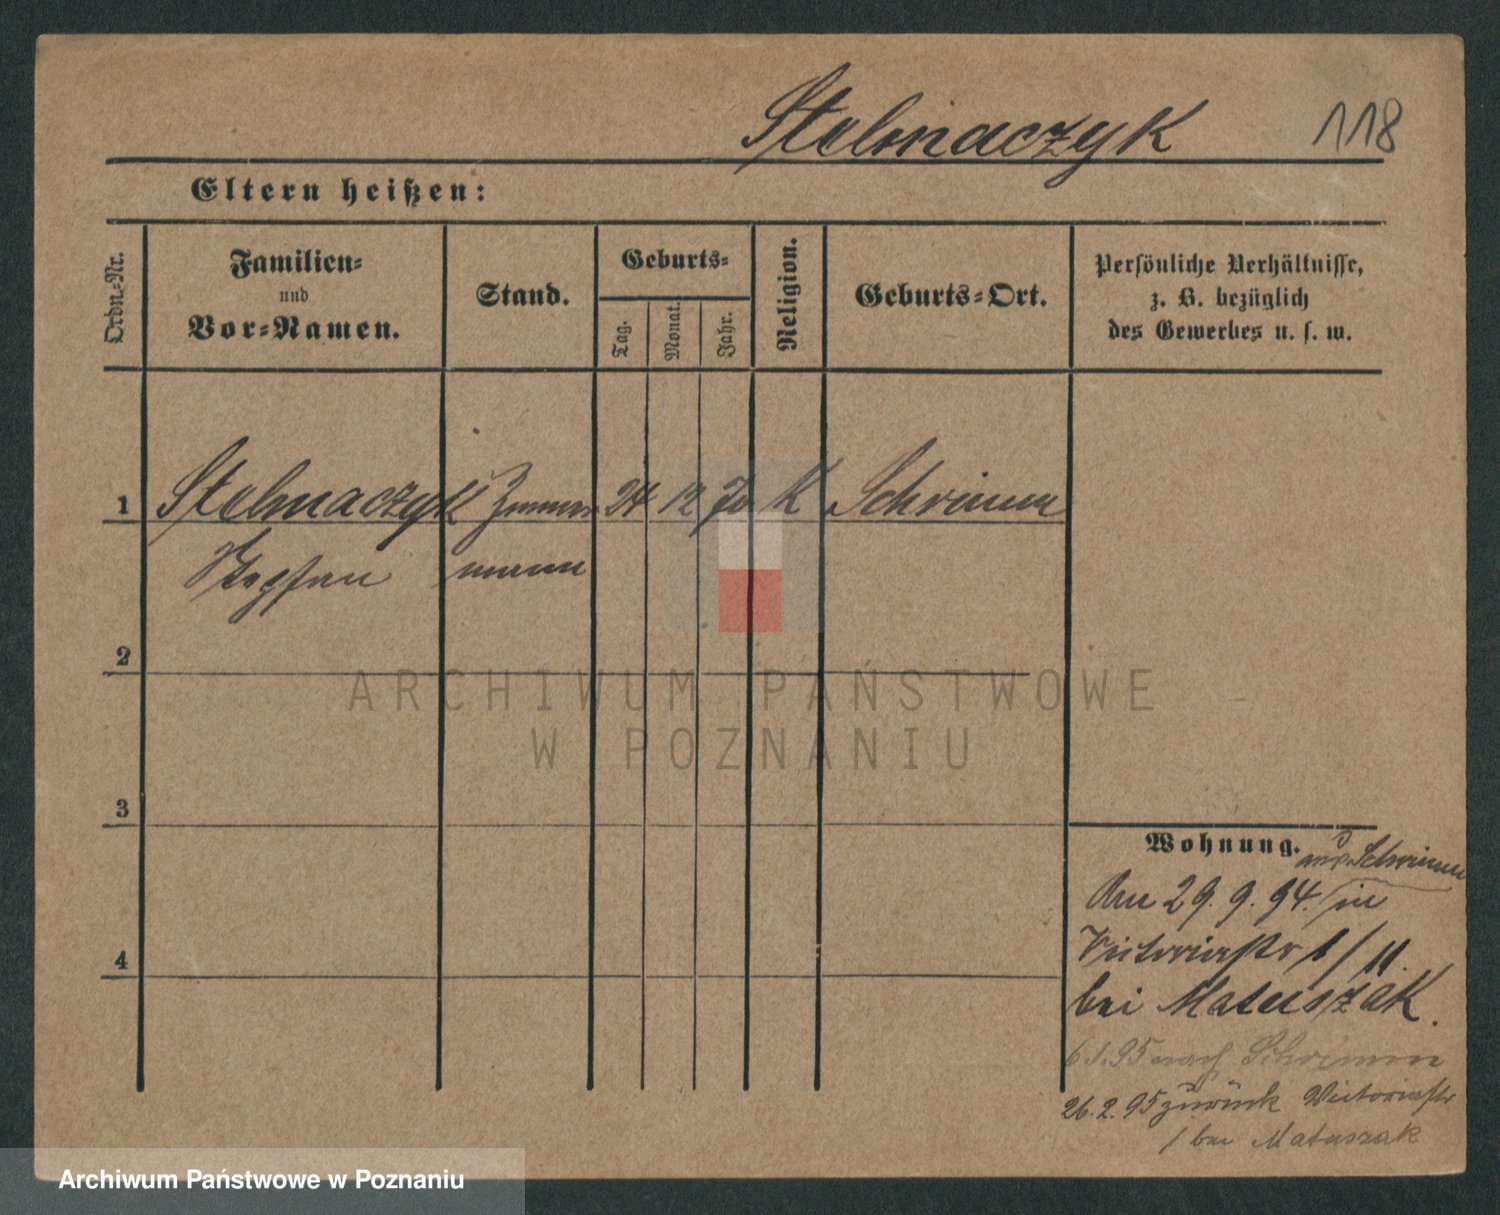 Stelmaczyk 118
Eltern heißen:
Ordn.-Nr.
Familien-
und
Vor-Namen.
Stand.
Geburts-
Tag.
Monat.
Jahr.
Religion.
Geburts-Ort.
Persönliche Verhältnisse,
z. B. bezüglich
des Gewerbes u. s. w.
1 Stelmaczyk Zimmer 24 12 K Schrimm
Stephan mann
2
3
4
Wohnung.
aus Schrimm
Am 29. 9. 94. in
Victoriastr 1/11.
bei Matuszak.
6.1.95 nach Schrimm
26.2.95 zurück Victoriastr
1 bei Matuszak
ARCHIWUM PAŃSTWOWE
W POZNANIU
Archiwum Państwowe w Poznaniu